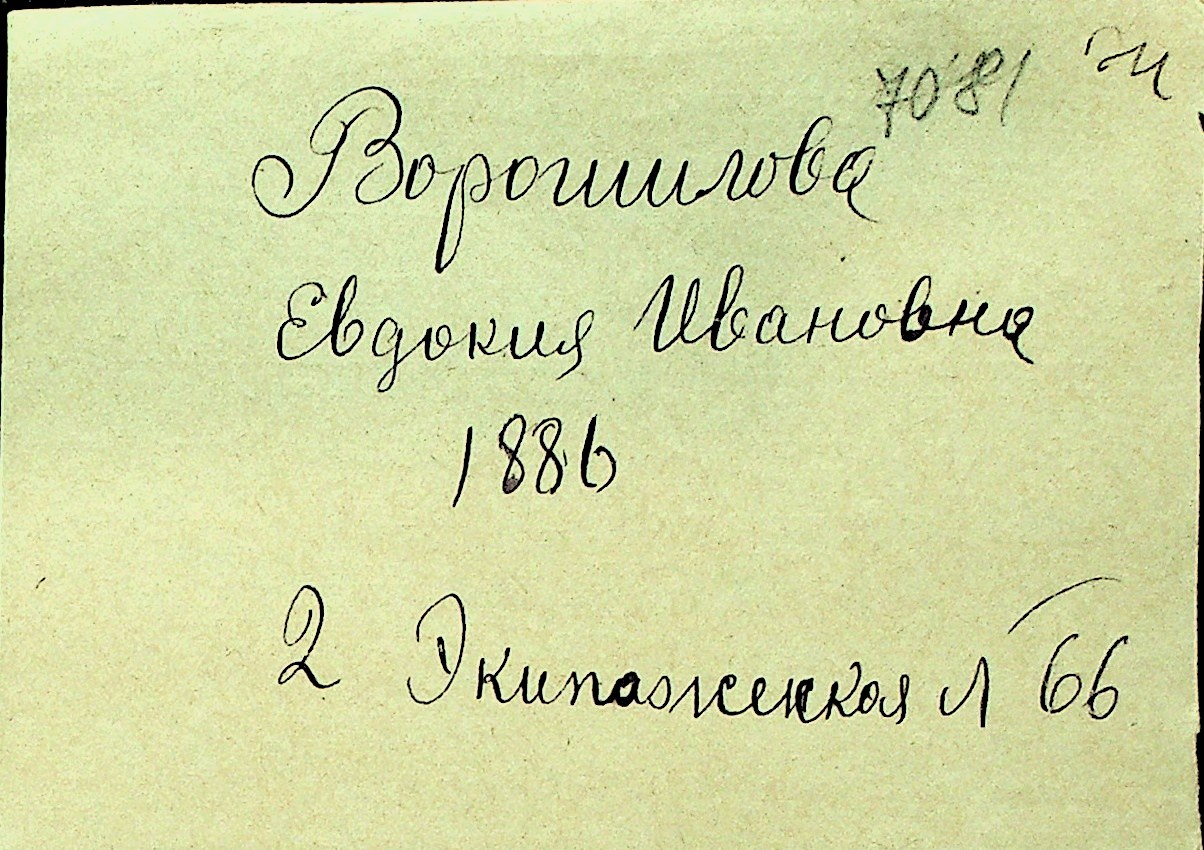 7081
Ворошилова
Евдокия Ивановна
1886
2 Экипаженская л 66